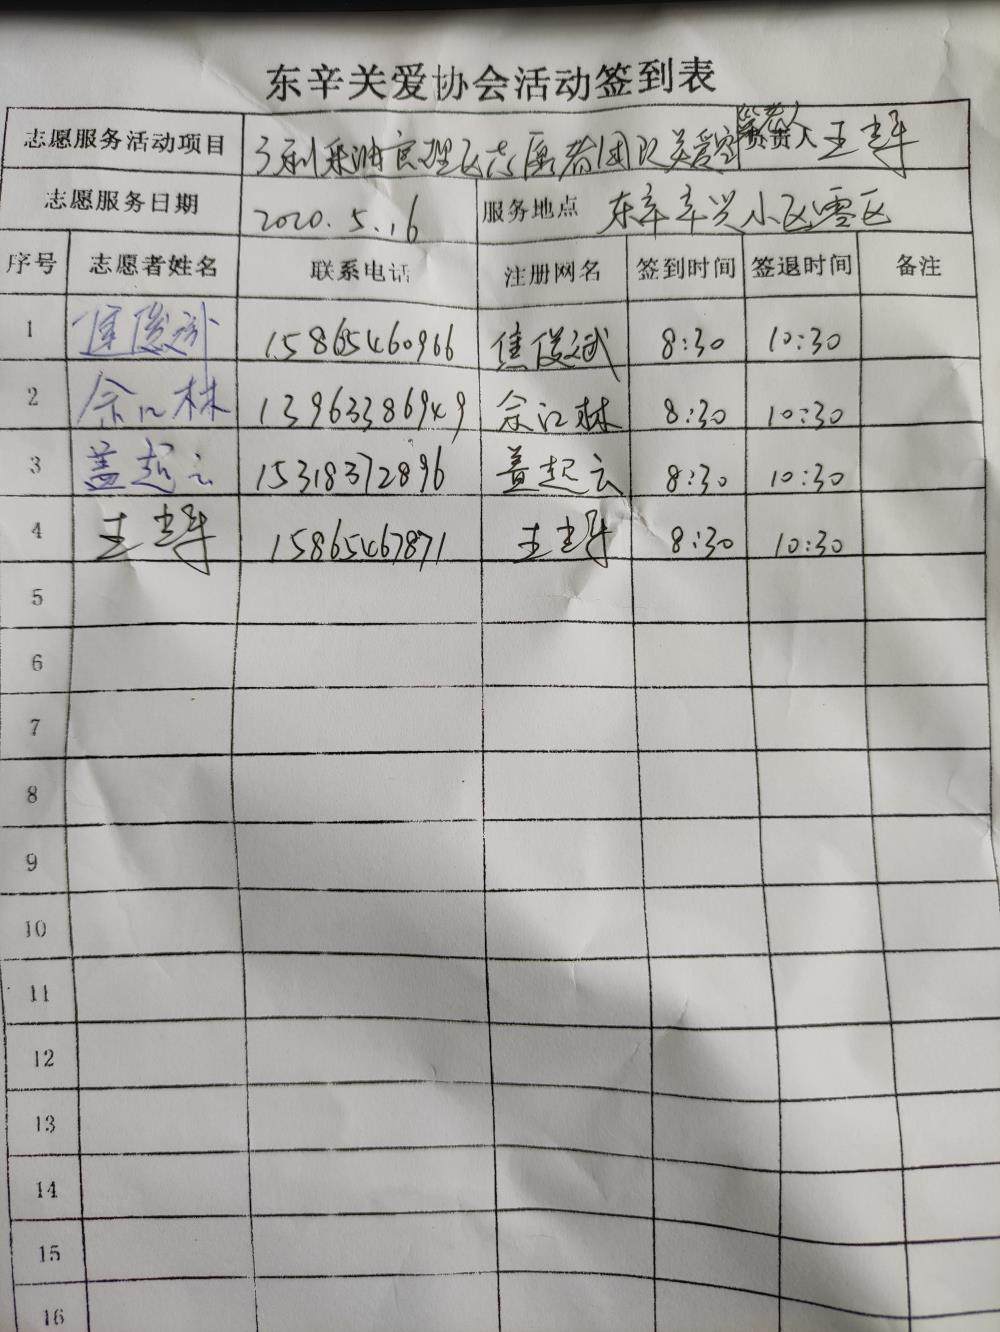 东辛关爱协会活动签到表
志愿服务活动项目 采油管理区志愿者团队关爱空巢老人 负责人 王
志愿服务日期 2020.5.16 服务地点 东辛辛兴小区零区
序号 志愿者姓名 联系电话 注册网名 签到时间 签退时间 备注
1 焦俊斌 15865460966 焦俊斌 8:30 10:30
2 余江林 13963386949 余江林 8:30 10:30
3 盖起云 15318372896 盖起云 8:30 10:30
4 王 15865467871 王 8:30 10:30
5
6
7
8
9
10
11
12
13
14
15
16